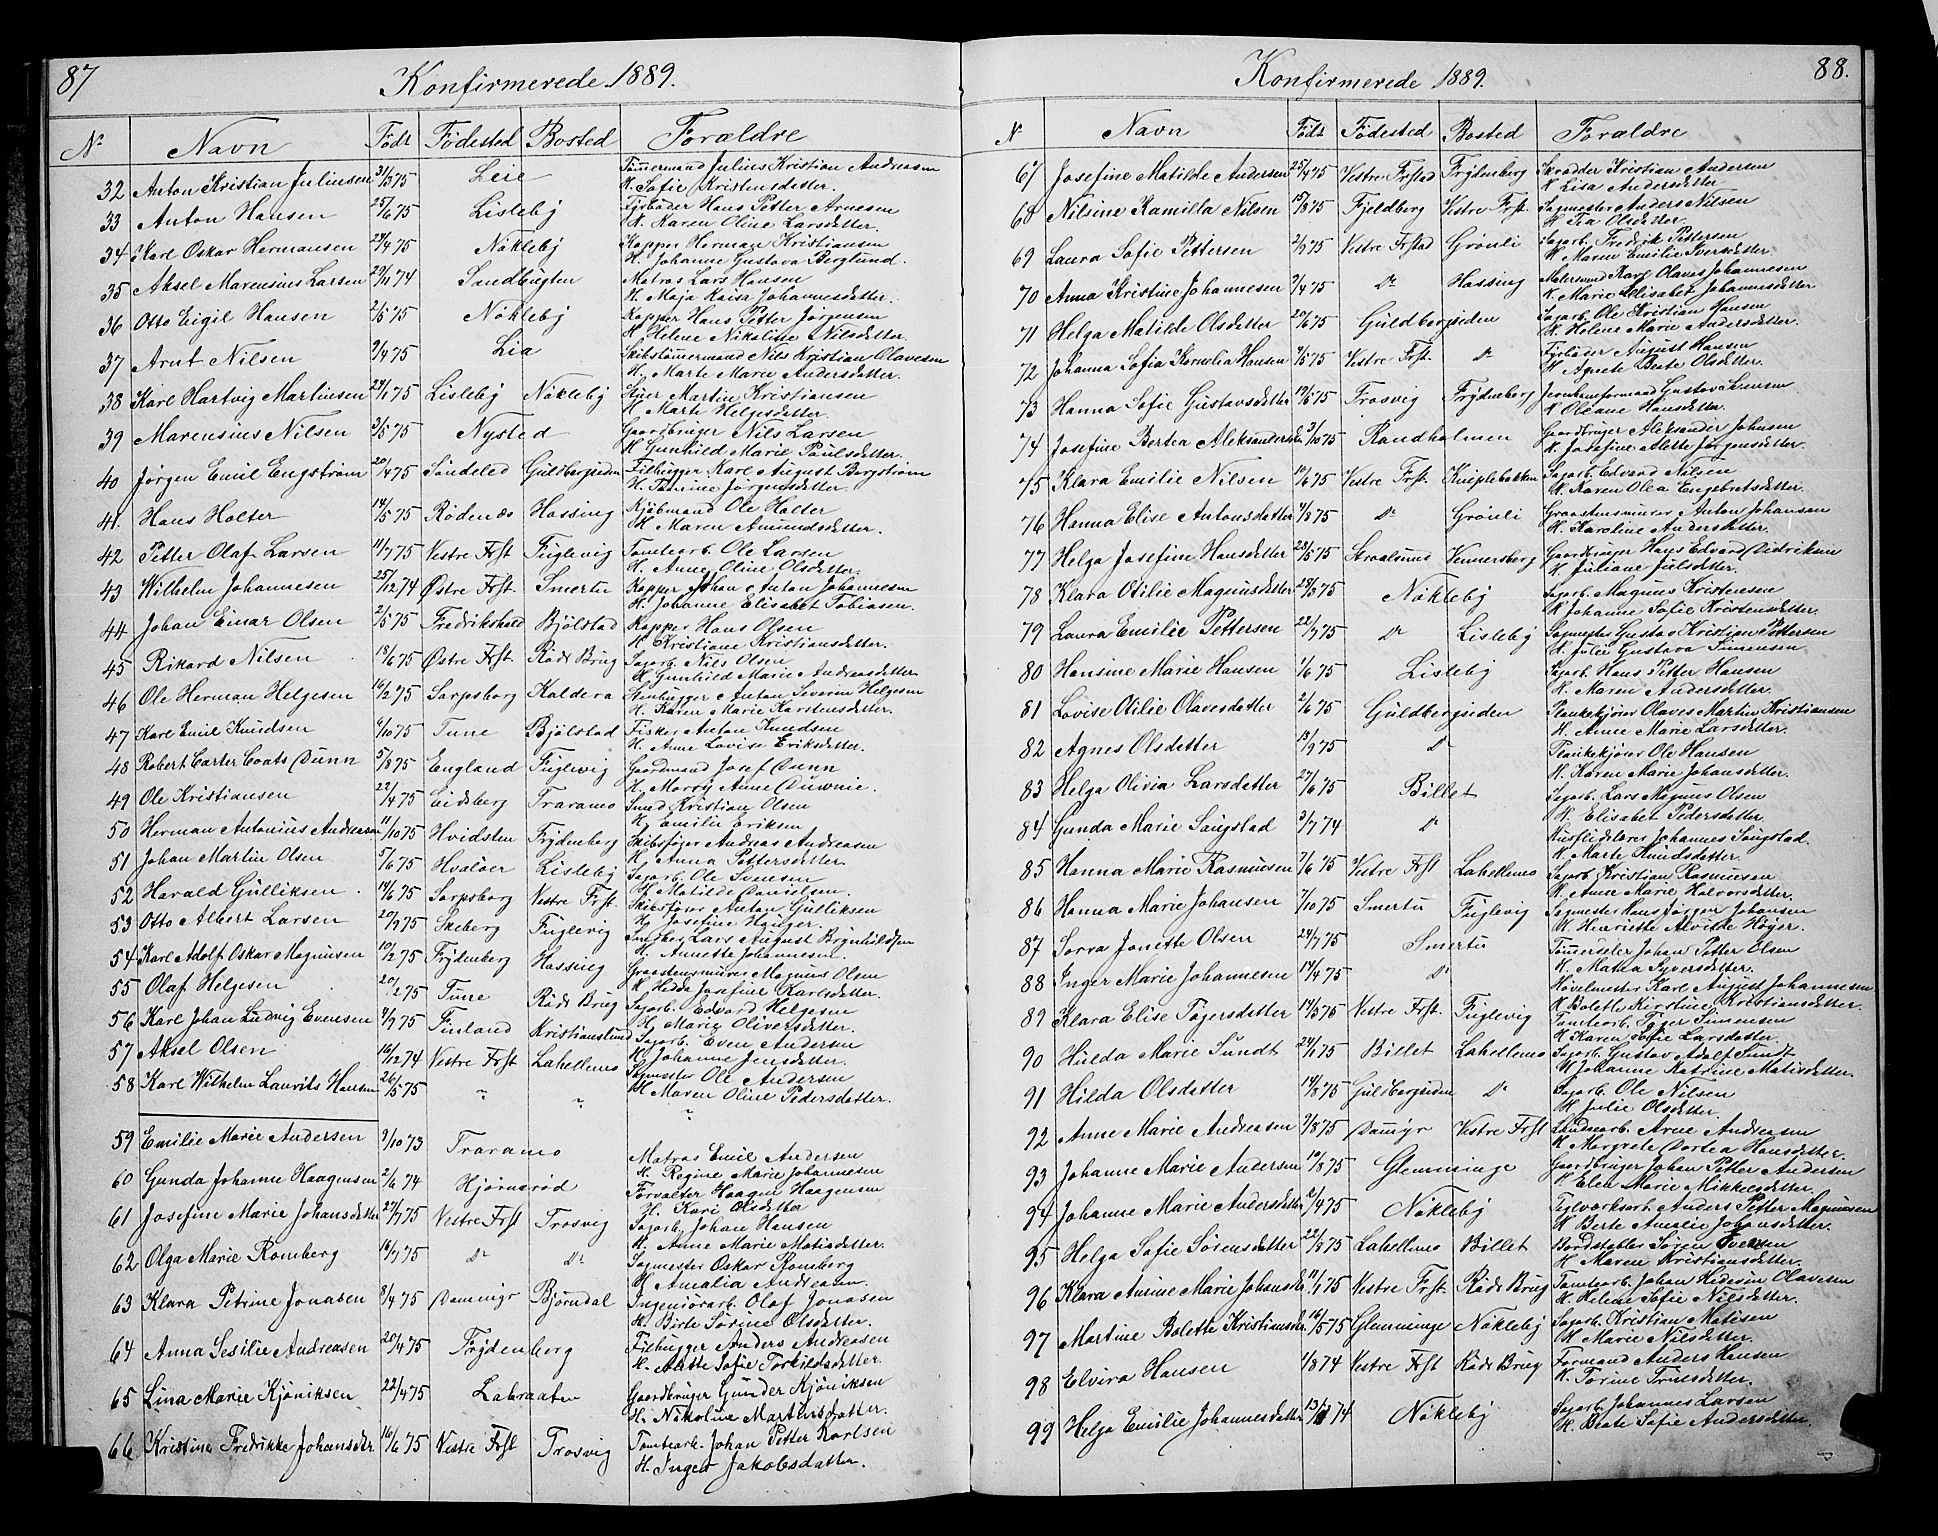 87
Konfirmerede 1889.
No Navn Født Fødested Bosted Forældre
32 Anton Kristian Juliussen 31/3 75 Leie Tømermand Julius Kristian Andreasen
H. Sofie Kristensdatter.
33 Anton Hansen 25/6 75 Lisleby Fyrbøder Hans Petter Arnesen
H. Karen Oline Larsdatter.
34 Karl Oskar Hermansen 28/4 75 Nøkleby Kopper Herman Kristiansen
H. Johanne Gustava Berglund.
35 Aksel Marensius Larsen 29/11 74 Sandbugten Matros Lars Hansen
H. Maja Kaisa Johannesdatter.
36 Otto Eigil Hansen 2/5 75 Nøkleby Kopper Hans Petter Jørgensen
H. Helene Nikoline Nilsdatter.
37 Arnt Nilsen 9/4 75 Lia Skibstømermand Nils Kristian Olavesen
H. Marte Marie Andersdatter.
38 Karl Hartvig Martinsen 24/1 75 Lisleby Nøkleby Stuer Martin Kristiansen
H. Marte Helgesdatter.
39 Marensius Nilsen 3/5 75 Nysted Gaardbruger Nils Larsen
H. Gunhild Marie Paulsdatter.
40 Jørgen Emil Engstrøm 20/4 75 Søndeled Guldbergsiden Filhugger Karl August Borgstrøm
H. Tomine Jørgensdatter.
41. Hans Holter 14/5 75 Rødenæs Hassing Kjøbmand Ole Holter
H. Maren Amundsdatter.
42 Petter Olaf Larsen 11/7 75 Vestre Frst Fuglevig Tomtearb. Ole Larsen
H. Anne Oline Olsdatter.
43 Wilhelm Johannesen 25/12 74 Østre Frst. Smertu Kopper Johan Anton Johannesen
H. Johanne Elisabet Tobiasen.
44 Johan Einar Olsen 2/5 75 Fredrikshald Bjølstad Kopper Hans Olsen
H. Kristiane Kristiansdatter.
45 Rikard Nilsen 18/6 75 Østre Frst. Røds Brug Sagarb. Nils Olsen
H. Gunhild Marie Andreasdatter
46 Ole Herman Helgesen 16/2 75 Sarpsborg Kaldera Stenhugger Anton Severin Helgesen
H. Karen Marie Karstensdatter.
47 Karl Emil Knudsen 6/10 75 Tune Bjølstad Fisker Anton Knudsen
H. Anne Lovise Eriksdatter.
48 Robert Carter Coats Dunn 5/8 75 England Fuglevig Gaardmand Josef Dunn
H. Marry Anne Duwnie.
49 Ole Kristiansen 22/4 75 Eidsberg Traramo Smed Kristian Olsen
H. Emilie Eriksen
50 Herman Antonius Andreasen 11/10 75 Hvidsten Frydenberg Skibsfører Andreas Andreasen
H. Anna Pettersdatter.
51 Johan Martin Olsen 5/6 75 Hvaløer Lisleby Sagarb. Ole Svensen
H. Matilde Danielsen.
52 Harald Gulliksen 14/6 75 Sarpsborg Vestre Frst. Skibsfører Anton Gulliksen
H. Josefine Hauger.
53 Otto Albert Larsen 20/7 75 Skeberg Fuglevig Lars August Brynhildsen
H. Annette Johannesen.
54 Karl Adolf Oskar Magnusen 10/2 75 Frydenberg Hassing Graastensmurer Magnus Olsen
H. Hedda Josefine Karlsdatter.
55 Olaf Helgesen 20/2 75 Tune Røds Brug Sagarb. Edvard Helgesen
H. Marie Oliversdatter.
56 Karl Johan Ludvig Evensen 4/7 75 Finland Kristianslund Sagarb. Even Andersen
H. Johanne Jensdatter.
57 Aksel Olsen 16/12 74 Vestre Frst Lahellemo Sagmester Ole Andersen
H. Maren Oline Pedersdatter.
58 Karl Wilhelm Laurits Hansen 26/5 75 " " "
59 Emilie Marie Andersen 9/10 73 Traramo Matros Emil Andersen
H. Regine Marie Johannesen
60 Gunda Johanne Haagensen 2/6 74 Hjørnerød Forvalter Haagen Haagensen
H. Kari Olsdatter
61 Josefine Marie Johansdatter 27/7 75 Vestre Frst Trosvig Sagarb. Johan Hansen
H. Anne Marie Matisdatter.
62 Olga Marie Romberg 16/7 75 Do Do Sagmester Oskar Romberg
H. Amalia Andreasen.
63 Klara Petrine Jonasen 8/4 75 Damingr Bjørndal Ingeniørarb. Olaf Jonasen
H. Birte Sørine Olsdatter.
64 Anna Sesilie Andreasen 20/4 75 Frydenberg Filhugger Anders Andreasen
H. Alette Sofie Torkildsdatter.
65 Lina Marie Kjøniksen 22/4 75 Labraaten Gaardbruger Gunder Kjøniksen
H. Nikoline Martinsdatter.
66 Kristine Fredrikke Johansdtr. 16/6 75 Vestre Frst Trosvig Tomtearb. Johan Petter Karlsen
H. Inger Jakobsdatter.
88.
Konfirmerede 1889.
No Navn Født Fødested Bosted Forældre
67 Josefine Matilde Andersen 25/4 75 Vestre Frstad Frydenberg Skrædder Kristian Andersen
H. Lisa Andersdatter
68 Nilsine Kamilla Nilsen 15/8 75 Fjeldberg Vestre Frst. Sagmester Anders Nilsen
H. Tea Olsdatter.
69 Laura Sofie Pettersen 2/7 75 Vestre Frstad Grønli Sagarb. Fredrik Pettersen
H. Maren Emilie Iversdatter.
70 Anna Kristine Johannesen 7/4 75 Do Hassing Matersmed Karl Olaves Johannesen
H. Marie Elisabet Johannesdatter.
71 Helga Matilde Olsdatter 20/6 75 Guldbergsiden Sagarb. Ole Kristian Hansen
H. Helene Marie Andersdatter.
72 Johanna Sofia Kornelia Hansen 7/5 75 Vestre Frst. Do Fyrbøder August Hansen
H. Agnete Beate Olsdatter.
73 Hanna Sofie Gustavsdatter 19/6 75 Trosvig Frydenberg Jernbaneformand Gustav Larsen
H. Oleane Hansdatter.
74 Josefine Bertea Aleksandersdtr. 3/10 75 Randholmen Gaardbruger Aleksander Johnsen
H. Josefine Alette Jørgensdatter.
75 Klara Emilie Nilsen 19/6 75 Vestre Frst. Kniplebakken Sagarb. Edvard Nilsen
H. Karen Olea Engebretsdatter.
76 Hanna Elise Antonsdatter 7/3 75 Do Grønli Graastensmurer Anton Johansen
H. Karoline Andersdatter.
77 Helga Josefine Hansdatter 28/5 75 Straalsund Vennersberg Gaardbruger Hans Edvard Didriksen
H. Juliane Julsdatter.
78 Klara Otilie Magnusdatter 28/3 75 Nøkleby Sagarb. Magnus Kristensen
H. Johanne Sofie Kristensdatter.
79 Laura Emilie Pettersen 22/7 75 Do Lisleby Sagmester Gustav Kristian Pettersen
H. Julie Gustava Simensen
80 Hansine Marie Hansen 1/6 75 Lisleby Sagarb. Hans Petter Hansen
H. Maren Andersdatter.
81 Lovise Otilie Olavesdatter 2/6 75 Guldbergsiden Plankekjører Olaves Martin Kristiansen
H. Anne Marie Larsdatter.
82 Agnes Olsdatter 13/9 75 Do Plankekjører Ole Hansen
H. Karen Marie Johansdatter.
83 Helga Olivia Larsdatter 27/6 75 Billet Sagarb. Lars Magnus Olsen
H. Elisabet Pedersdatter.
84 Gunda Marie Saugstad 3/7 74 Do Husflidslærer Johannes Saugstad.
H. Marte Knudsdatter.
85 Hanna Marie Rasmusen 7/6 75 Vestre Frst Lahellemo Sagarb. Kristian Rasmusen
H. Anne Marie Halvorsdatter.
86 Hanna Marie Johansen 7/10 75 Smertu Fuglevig Sagmester Hans Jørgen Johansen
H. Henriette Alvilde Høyer.
87 Sorra Jonette Olsen 24/7 75 Smertu Tømerseler Johan Petter Olsen
H. Matea Syversdatter.
88 Inger Marie Johannesen 14/4 75 Do Høvelmester Karl August Johannesen
H. Bolette Kirstine Kristiansdatter.
89 Klara Elise Tøgersdatter 14/5 75 Vestre Frst. Fuglevig Tomtearb. Tøger Simensen
H. Karen Sofie Larsdatter.
90 Hulda Marie Sundt 24/1 75 Billet Lahellemo Sagarb. Gustav Adolf Sundt
H. Johanne Katrine Matisdatter.
91 Hilda Olsdatter 14/2 75 Guldbergsiden Do Sagarb. Ole Nilsen
H. Julie Olsdatter.
92 Anne Marie Andreasen 9/8 75 Damyr Vestre Frst Landsarb. Arne Andreasen
H. Margrete Dortea Hansdatter.
93 Johanne Marie Andersen 19/8 75 Glemminge Gaardbruger Johan Petter Andersen
H. Elen Marie Mikkelsdatter.
94 Johanne Marie Andersdatter 2/4 75 Nøkleby Teglværksarb. Anders Petter Magnusen
H. Berte Amalie Johansdatter.
95 Helga Sofie Sørensdatter 22/3 75 Lahellemo Billet Bordstabler Søren Evensen
H. Maren Kristiansdatter.
96 Klara Amine Marie Johansdtr. 11/1 75 Vestre Frst. Røds Brug Tomtearb. Johan Hedevin Olavesen
H. Helene Sofie Nilsdatter.
97 Martine Bolette Kristiansdtr. 16/5 75 Glemminge Nøkleby Sagarb. Kristian Matisen
H. Marie Nilsdatter.
98 Elvira Hansen 1/8 74 Vestre Frst Røds Brug Formand Anders Hansen
H. Torine Trulsdatter.
99 Helga Emilie Johannesdatter 13/ 74 Nøkleby Sagarb. Johannes Larsen
H. Beate Sofie Andersdatter.